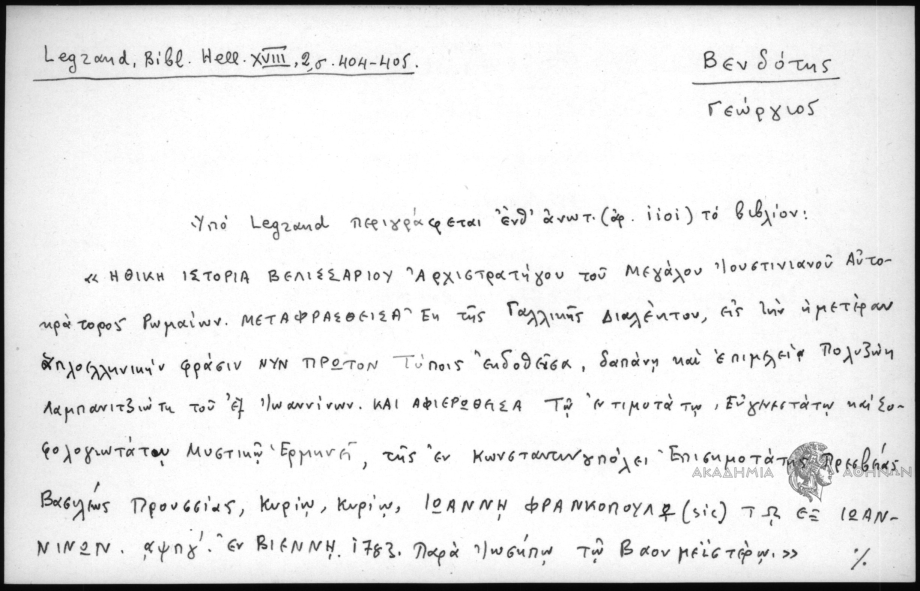 Legrand, Bibl. Hell. XVIII, 2, σ. 404-405.
Βενδότης
Γεώργιος
Ὑπό Legrand περιγράφεται ἔνθ' ἀνωτ. (ἀρ. 1101) τό βιβλίον:
« ΗΘΙΚΗ ΙΣΤΟΡΙΑ ΒΕΛΙΣΣΑΡΙΟΥ Ἀρχιστρατήγου τοῦ Μεγάλου Ἰουστινιανοῦ Αὐτο-
κράτορος Ρωμαίων. ΜΕΤΑΦΡΑΣΘΕΙΣΑ Ἐκ τῆς Γαλλικῆς Διαλέκτου, εἰς τὴν ἡμετέραν
ἁπλοελληνικήν φράσιν ΝΥΝ ΠΡΩΤΟΝ Τύποις ἐκδοθεῖσα, δαπάνῃ καί ἐπιμελείᾳ Πολυζώη
Λαμπανιτζιώτη τοῦ ἐξ Ἰωαννίνων. ΚΑΙ ΑΦΙΕΡΩΘΕΙΣΑ Τῷ ἐντιμοτάτῳ, Εὐγνεστάτῳ καί Σο-
φολογιωτάτῳ Μυστικῷ Ἑρμηνεῖ, τῆς ἐν Κωνσταντινουπόλει Ἐπισημοτάτης Πρεσβείας
ΑΚΑΔΗΜΙΑ ΑΘΗΝΩΝ
Βασιλέως Προυσσίας, Κυρίῳ, Κυρίῳ, ΙΩΑΝΝῌ ΦΡΑΝΚΟΠΟΥΛῼ (sic) Τῼ ΕΞ ΙΩΑΝ-
ΝΙΝΩΝ. αψπγ΄. Ἐν ΒΙΕΝΝῌ. 1783. Παρὰ Ἰωσήπῳ τῷ Βαουμεϊστέρῳ.» ./.